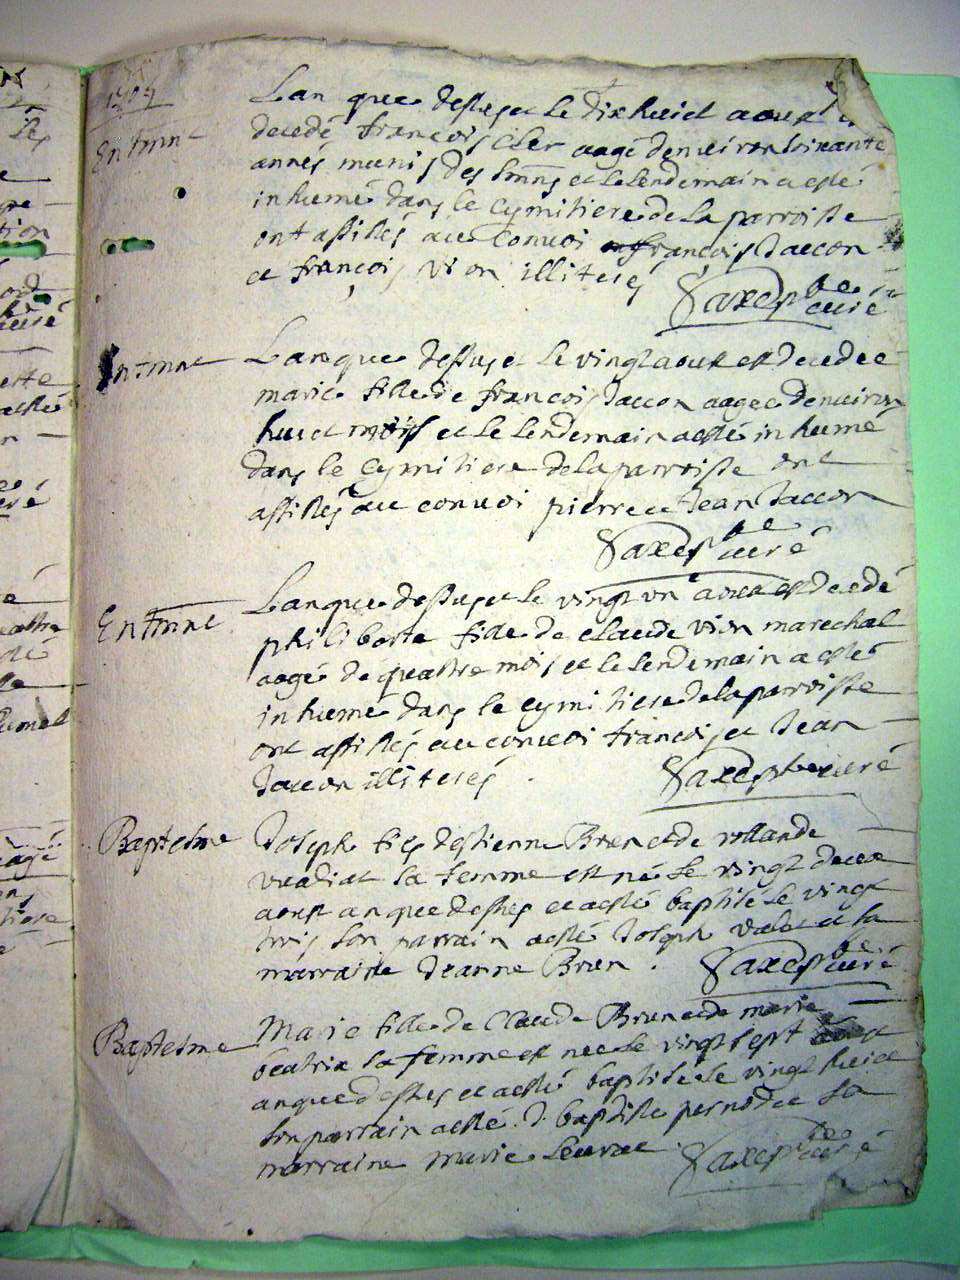 1709
Enterrmt
L'an que dessus et le dix huict aoust
decedé françois Cler aagé denviron soixante
annés muni des Smns et le lendemain a esté
inhumé dans le cymitiere de la parroisse
ont assistés au Convoi françois Jaccon
et françois Vion illiterés
Saxe ptre curé
Enterrmt
L'an que dessus et le vingt aoust est decedée
marie fille de françois Jaccon aagée denviron
huict mois et le lendemain a esté inhumé
dans le cymitiere de la parroisse ont
assistés au convoi pierre et Jean Jaccon
Saxe ptre curé
Enterrmt
L'an que dessus et le vingt un aoust est decedé
philiberte fille de Claude Vion marechal
aagé de quattre mois et le lendemain a esté
inhumé dans le cymitiere de la parroisse
ont assistés au convoi françois et Jean
Jaccon illiterés
Saxe ptre curé
Baptesme
Joseph fils d'estienne Brun et de rollande
vuadiat sa femme est né le vingt deux
aoust an que dessus et a esté baptisé le vingt
trois son parrain a esté Joseph et sa
marraine Jeanne Brun.
Saxe ptre curé
Baptesme
Marie fille de Claude Brun et de marie
beatrix sa femme est née le vingt sept aoust
an que dessus et a esté baptisée le vingt huict
son parrain a esté J. baptiste pernod et sa
marraine marie
Saxe ptre curé